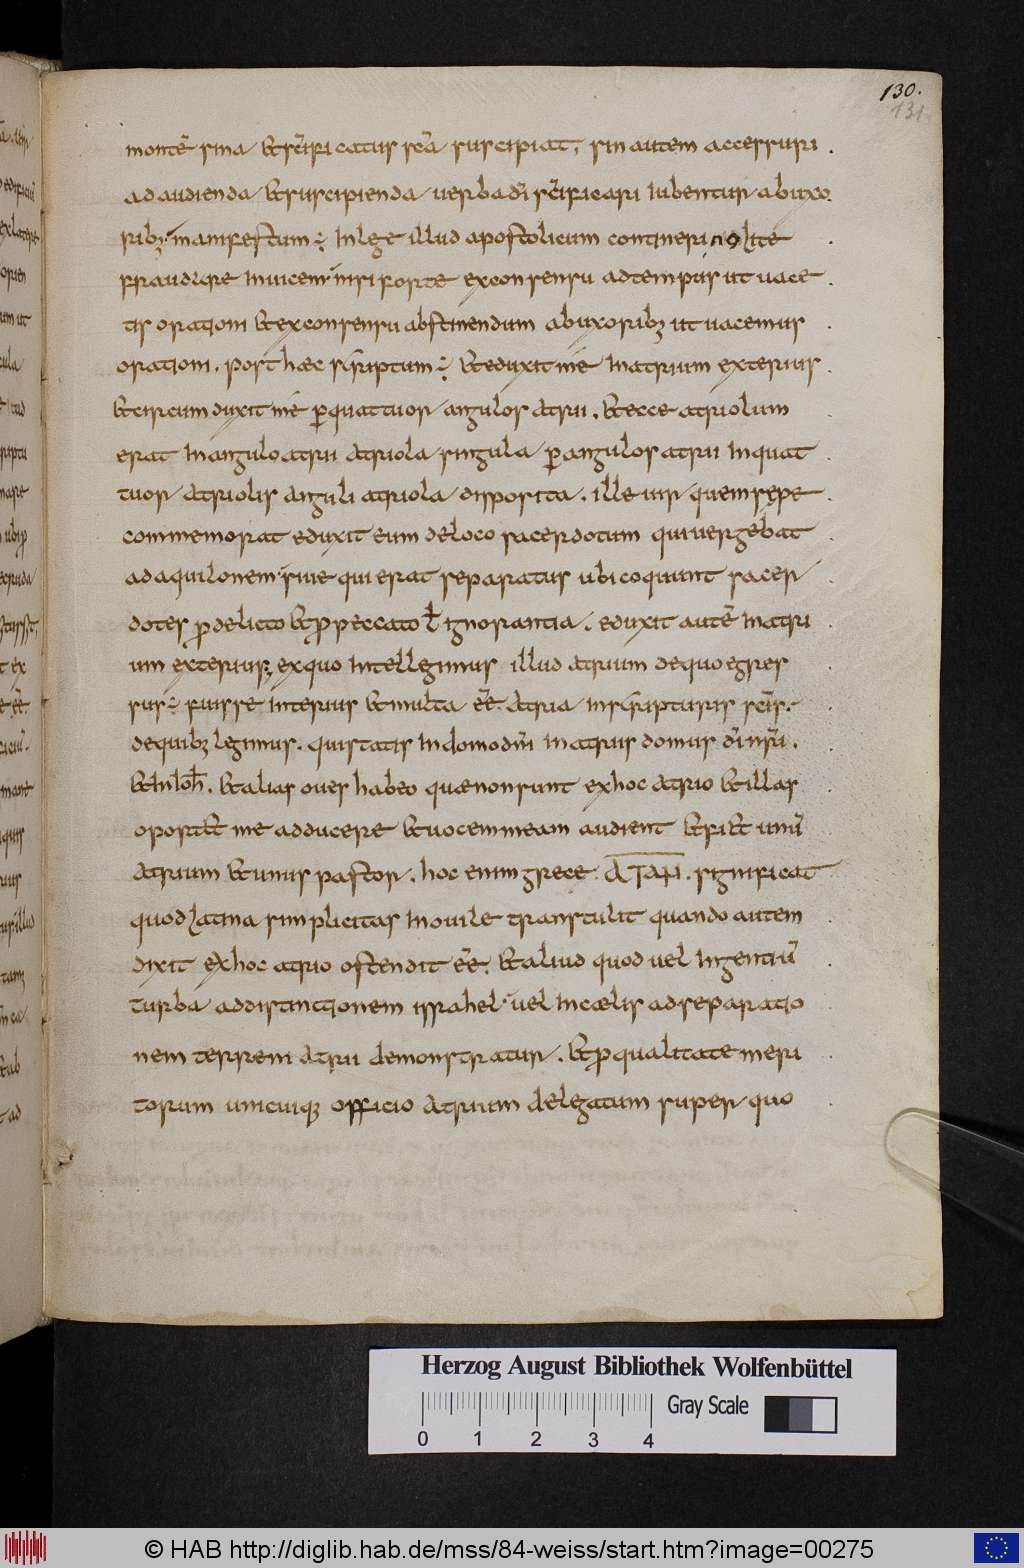 130.
131.
montē sina & sc̄ificatus sc̄a suscipiat; sin autem accessuri
ad audienda & suscipienda uerba dī sc̄ificari iubentur ab uxo
rib; manifestum ÷ in lege illud apostolicum contineri nolite
fraudare inuicem nisi forte ex consensu ad tempus ut uace
tis orationi & ex consensu abstinendum ab uxorib; ut uacemus
orationi. post haec scriptum ÷ & eduxit me in atrium exterius
& circumduxit me p quattuor angulos atrii. & ecce atriolum
erat in angulo atrii atriola singula p angulos atrii in quat
tuor atriolis anguli atriola disposita. ille uir quem sępe
commemorat eduxit eum de loco sacerdotum qui uergebat
ad aquilonem siue qui erat separatus ubi coquunt sacer
dotes p delicto & p peccato ł ignorantia. eduxit autē in atri
um exterius; ex quo intellegimus illud atrium de quo egres
sus ÷ fuisse interius & multa ēē atria in scripturis sc̄is.
de quib; legimus. qui statis in domo dn̄i in atriis domus dī nr̄i.
& in ioh. & alias oues habeo quae non sunt ex hoc atrio & illas
oport& me adducere & uocem meam audient & fi& unū
atrium & unus pastor. hoc enim grece ΑΥΛΗ. significat
quod latina simplicitas in ouile transtulit quando autem
dixit ex hoc atrio ostendit ēē & aliud quod uel in gentiū
turba ad distinctionem israhel uel in caelis ad separatio
nem terreni atrii demonstratur. & p qualitate meri
torum unicuiq; officio atrium delegatum super quo
Herzog August Bibliothek Wolfenbüttel
Gray Scale
0 1 2 3 4
© HAB http://diglib.hab.de/mss/84-weiss/start.htm?image=00275